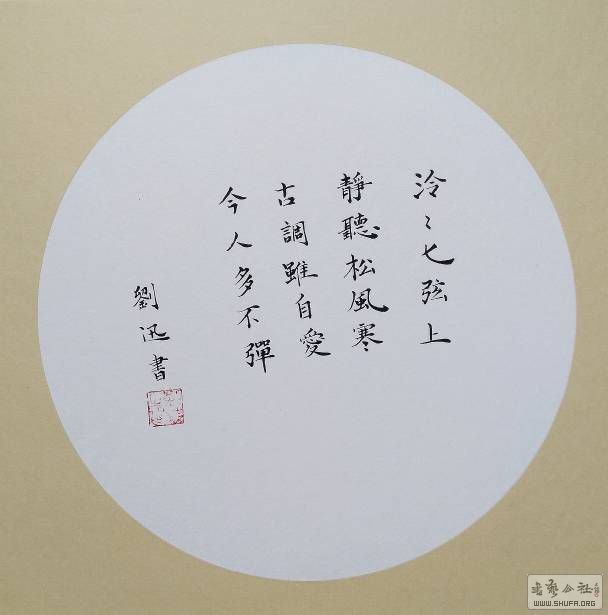 泠〻七弦上
靜聽松風寒
古調雖自愛
今人多不彈
劉迅書
WWW.SHUFA.ORG